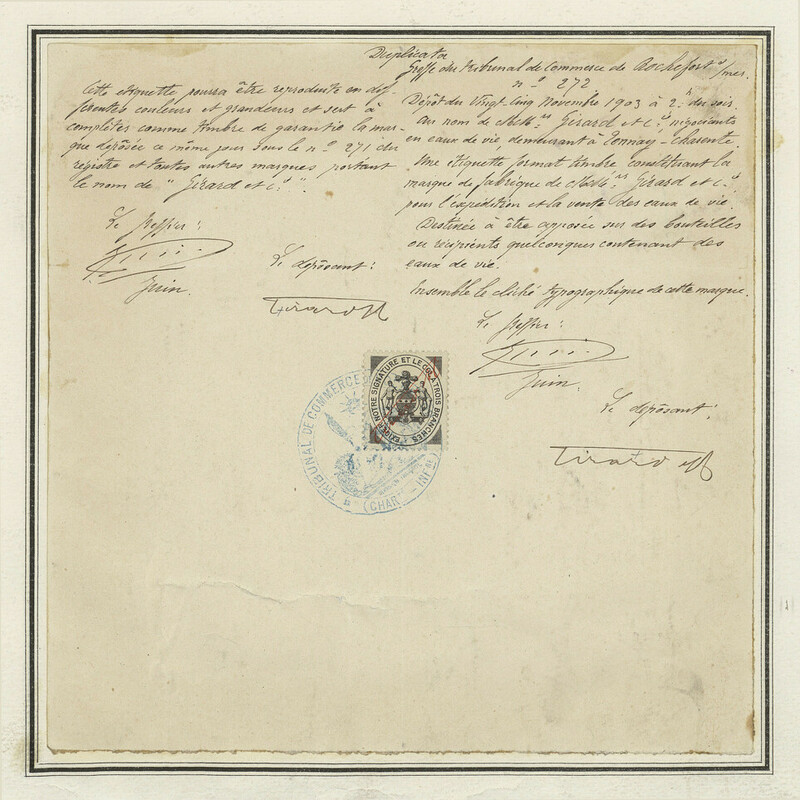 Duplicata
Greffe du tribunal de Commerce de Rochefort s/mer.
n.º 272
Cette étiquette pourra être reproduite en dif-
férentes couleurs et grandeurs et sert à
complèter comme timbre de garantie la mar-
que déposée ce même jour sous le n.º 271 du
registre et toutes autres marques portant
le nom de "Girard et Cie".
Le Greffier:
Juin.
Le déposant:
Girard &
Dépôt du Vingt-Cinq Novembre 1903 à 2 h du soir.
Au nom de MM rs Girard et Cie, négociants
en eaux de vie, demeurant à Tonnay-Charente.
Une étiquette format timbre constituant la
marque de fabrique de Girard et Cie
pour l'expédition et la vente des eaux de vie.
Destinée à être apposée sur des bouteilles
ou récipients quelconques contenant des
eaux de vie.
Ensemble le cliché typographique de cette marque.
Le Greffier:
Juin.
Le déposant:
Girard &
EXIGER NOTRE SIGNATURE ET LE COLA TROIS BRANCHES
TRIBUNAL DE COMMERCE
(CHAR INF